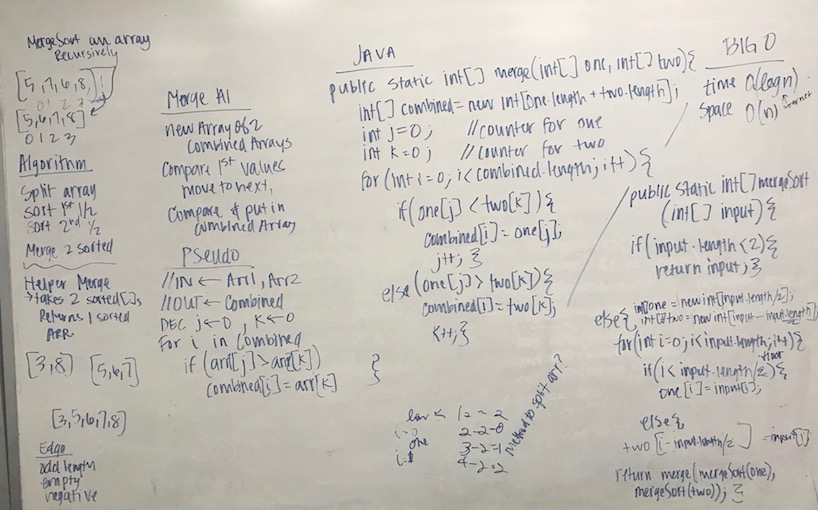 MergeSort an array
Recursively
[5,7,6,8,
0 1 2 3
[5,6,7,8]
0 1 2 3
Algorithm
Split array
sort 1st 1/2
sort 2nd 1/2
Merge 2 sorted
Helper Merge
→takes 2 sorted[],
Returns 1 sorted
ARR
[3,8] [5,6,7]
[3,5,6,7,8]
Edge
odd length
empty
negative
Merge Al
new Array of 2
Combined Arrays
Compare 1st values
move to next,
Compare & put in
Combined Array
Pseudo
//IN ← Arr1, Arr2
//OUT ← Combined
DEC j←0, k←0
for i in Combined
if (arr[j] > arr[k])
combined[i] = arr[k]
}
JAVA
public static int[] merge(int[] one, int[] two){
int[] combined = new int[one.length + two.length];
int j=0; //counter for one
int k=0; //counter for two
for(int i=0; i<combined.length; i++){
if(one[j] < two[k]){
combined[i] = one[j];
j++; }
else(one[j] > two[k]){
combined[i] = two[k];
k++;}
1 2 = 2
i=0 2-2=0
one 3-2=1
4-2=2
method to split arr?
BIG O
time O(logn)
space O(n)
public static int[] mergeSort
(int[] input){
if(input.length<2){
return input; }
else{ int[]one = new int[input.length/2];
int[]two = new int[input-input.length];
for(int i=0; i<input.length; i++){
floor
if(i < input.length/2){
one[i] = input[i];
else{
two[i-input.length/2] = input[i]
return merge(mergeSort(one),
mergeSort(two)); }